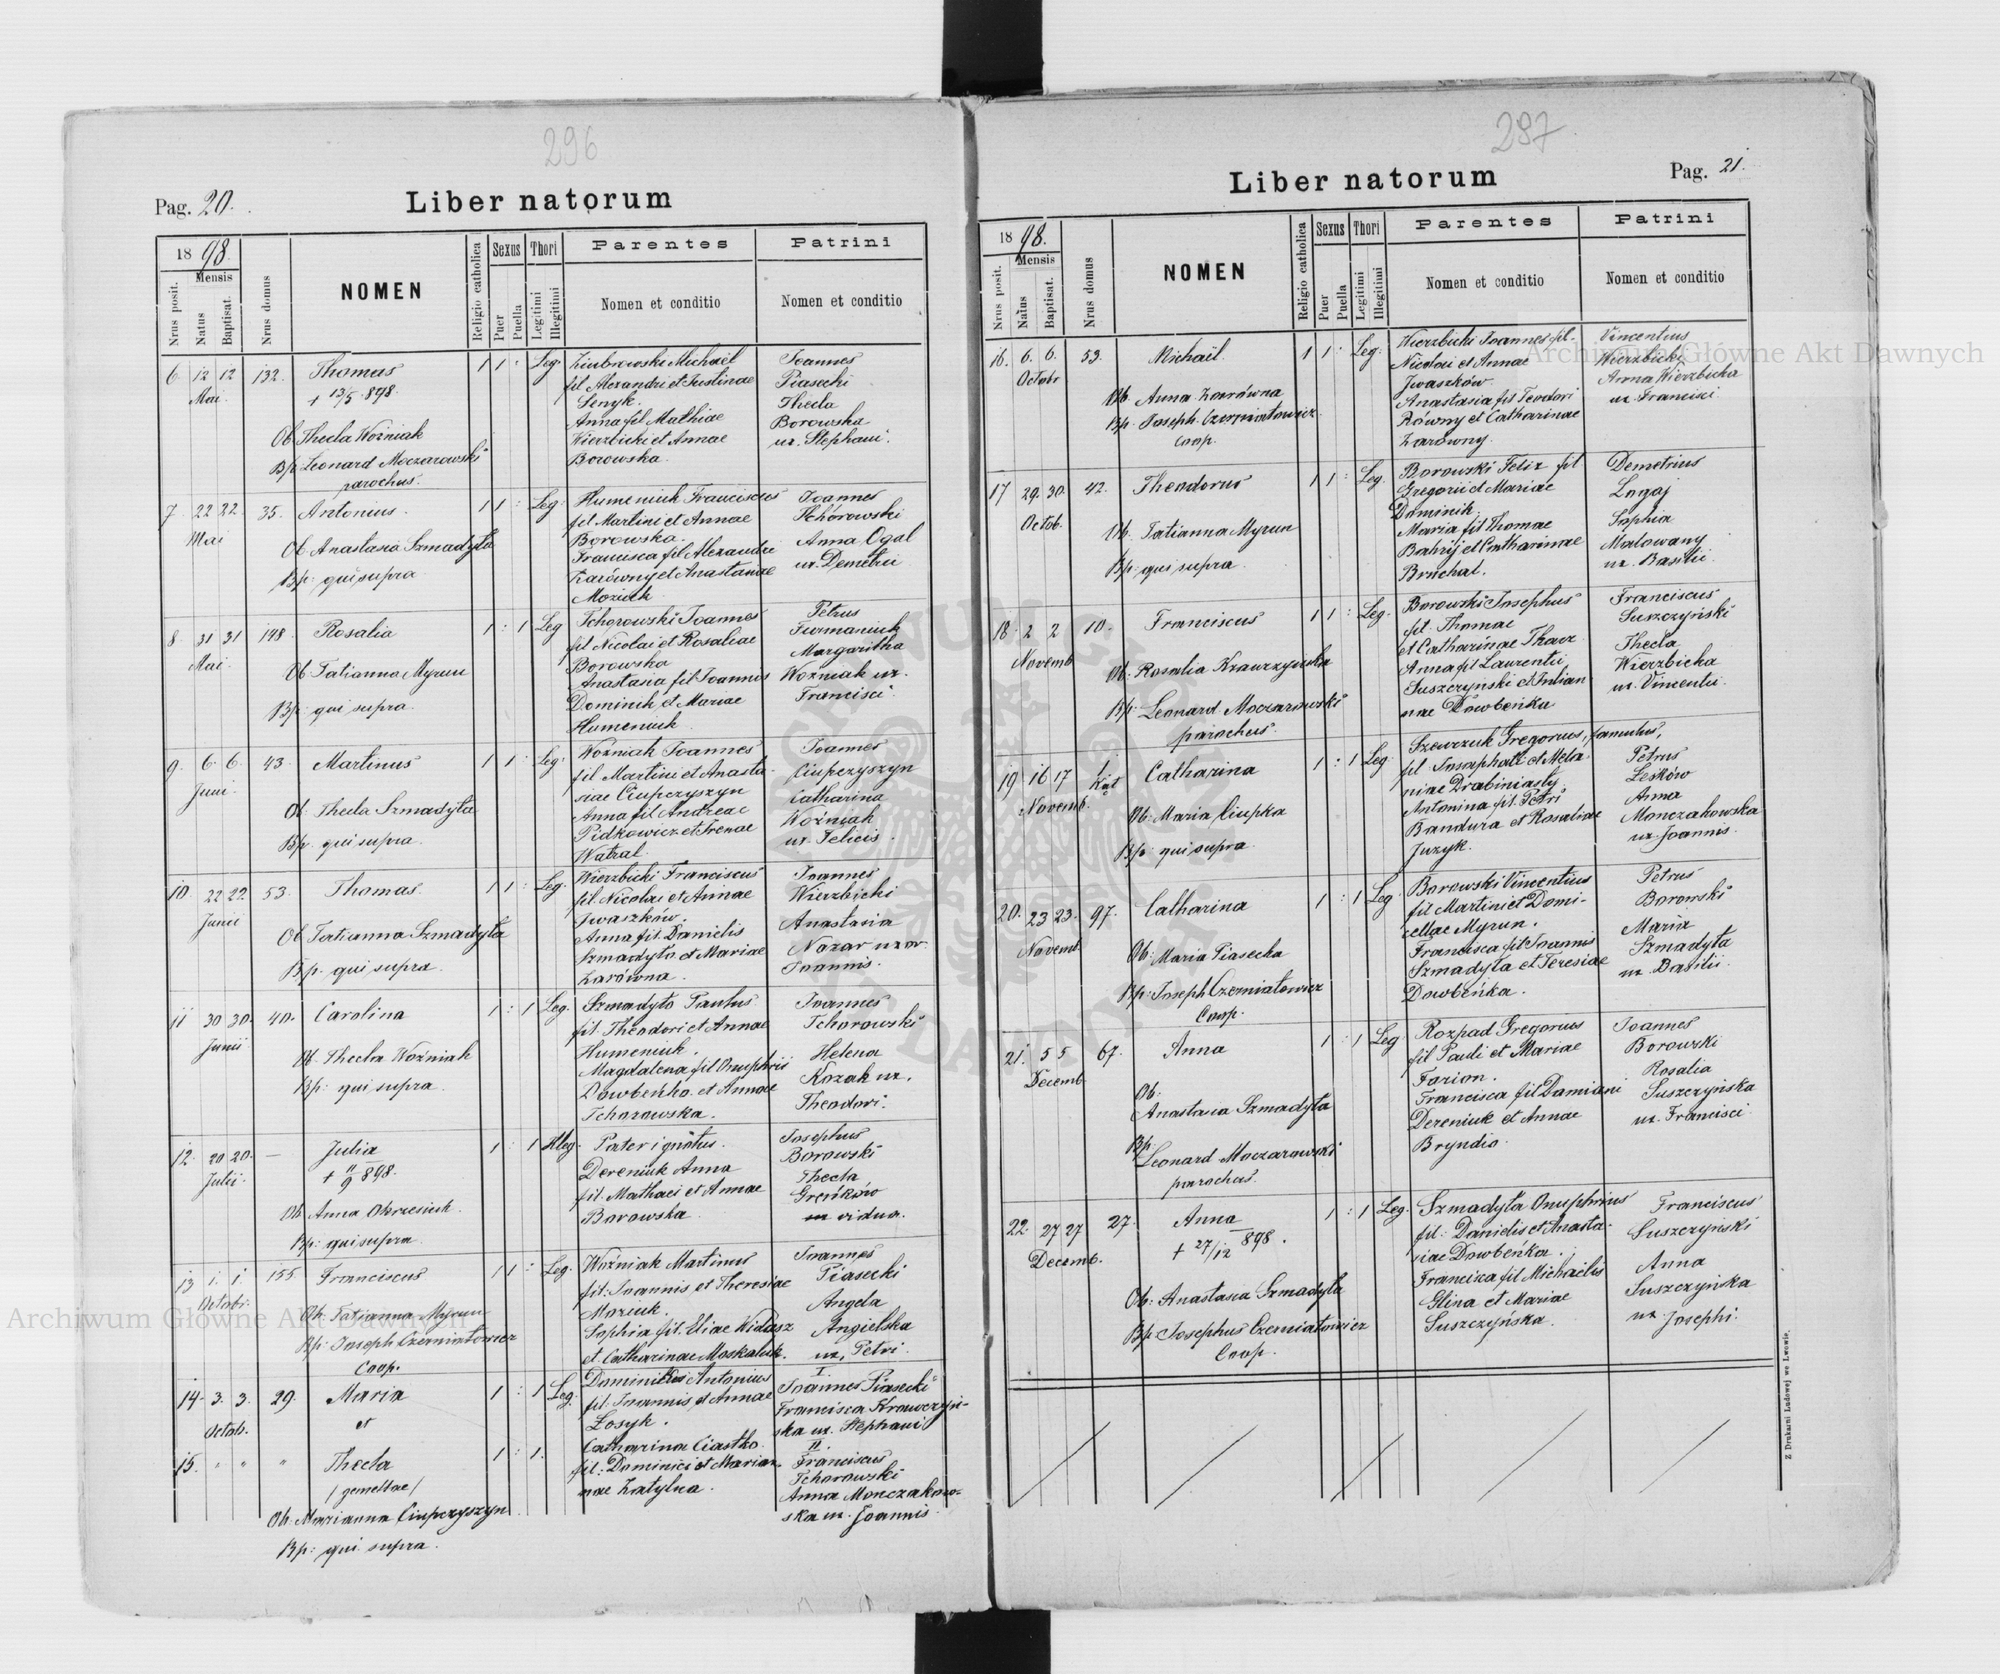 296
Pag. 20.
Liber natorum
1898.
Mensis
Nrus posit.
Natus
Baptisat.
Nrus domus
NOMEN
Religio catholica
Sexus
Puer
Puella
Thori
Legitimi
Illegitimi
Parentes
Nomen et conditio
Patrini
Nomen et conditio
6 12 12 132. Thomas 1 1 : Leg.
Mai.
+ 13/5 898.
Ob. Thecla Woźniak
Bp. Leonard Moczarowski
parochus.
Michaël
fil Alexandri et Justinae
Senyk.
Anna fil Mathiae
Wierzbicki et Annae
Borowska.
Joannes
Piasecki
Thecla
Borowska
ux. Stephani.
7. 22 22. 35. Antonius. 1 1 : Leg.
Mai
Ob. Anastasia Szmadyła
Bp: qui supra
Humeniuk Franciscus
fil Martini et Annae
Borowska.
Francisca fil Alexandri
Zarówny et Anastasiae
Moziuk
Joannes
Tchórowski
Anna Ogal
ux. Demetrii
8 31 31 148. Rosalia 1 : 1 Leg
Mai.
Ob. Tatianna Myrun
Bp: qui supra.
Tchorowski Joannes
fil Nicolai et Rosaliae
Borowska
Anastasia fil Joannis
Dominik et Mariae
Humeniuk
Petrus
Furmaniuk
Margaritha
Woźniak ux.
Francisci.
9. 6. 6. 43. Martinus 1 1 : Leg.
Juni.
Ob. Thecla Szmadyła
Bp. qui supra.
Woźniak Joannes
fil Martini et Anasta-
siae Ciupczyszyn
Anna fil Andreae
Pidkowicz et Irenae
Watral
Joannes
Ciupczyszyn
Catharina
Woźniak
ux. Felicis.
10. 22 22. 53. Thomas. 1 1 : Leg.
Junii
Ob. Tatianna Szmadyła
Bp. qui supra.
Wierzbicki Franciscus
fil Nicolai et Annae
Jwaszków.
Anna fil. Danielis
Szmadyło et Mariae
Zarówna.
Joannes
Wierzbicki
Anastasia
Nazar uxor.
Joannis.
11 30 30. 40. Carolina 1 : 1 Leg.
Junii
Ob. Thecla Woźniak
Bp: qui supra.
Szmadyło Paulus
fil. Theodori et Annae
Humeniuk.
Magdalena fil Onuphrii
Dowbeńko et Annae
Tchorowska.
Joannes
Tchorowski
Helena
Kozak ux.
Theodori.
12. 20 20. — Julia 1 : 1 Illeg.
Julii.
+ 11/9 898.
Ob Anna Okrzesiuk.
Bp: qui supra
Pater ignotus.
Dereniuk Anna
fil. Mathaei et Annae
Borowska.
Josephus
Borowski
Thecla
Greńków
vidua.
13 1. 1. 155. Franciscus 1 1 : Leg.
Octobr.
Ob. Tatianna Myrun
Bp: Joseph Czerniatowicz
Coop.
Woźniak Martinus
fil: Joannis et Theresiae
Moziuk.
Sophia fil. Eliae
et Catharinae Moskaluk.
Joannes
Piasecki
Angela
Angielska
ux. Petri.
14. 3. 3. 29. Maria 1 : 1 Leg.
Octob.
et
15. " " " Thecla 1 : 1.
/gemellae/
Ob. Marianna Ciupczyszyn
Bp: qui supra.
Antonius
fil: Joannis et Annae
Łosyk.
Catharina Ciastko
fil: Dominici et Marian-
nae Zatylna.
I.
Joannes Piasecki
Francisca Krawczyń-
ska ux. Stephani
II.
Franciscus
Tchorowski
Anna Monczakow-
ska ux. Joannis.
297
Liber natorum
Pag. 21.
1898.
Mensis
Nrus posit.
Natus
Baptisat.
Nrus domus
NOMEN
Religio catholica
Sexus
Puer
Puella
Thori
Legitimi
Illegitimi
Parentes
Nomen et conditio
Patrini
Nomen et conditio
16. 6. 6. 53. Michaël. 1 1 : Leg.
Octobr
Ob. Anna Zarówna
Bp. Joseph Czerniatowicz
Coop.
Wierzbicki Joannes fil.
Nicolai et Annae
Jwaszków.
Anastasia fil Teodori
Równy et Catharinae
Zarówny.
Vincentius
Wierzbicki
Anna Wierzbicka
ux. Francisci.
17 29. 30. 42. Theodorus 1 1 : Leg.
Octob.
Ob. Tatianna Myrun
Bp: qui supra.
Borowski Felix fil
Gregorii et Mariae
Dominik.
Maria fil Thomae
Bahrij et Catharinae
Bruchal.
Demetrius
Sophia
Malowany
ux. Basilii.
18. 2 2 10. Franciscus 1 1 : Leg.
Novemb
Ob. Rosalia Krawczyńska
Bp: Leonard Moczarowski
parochus.
Borowski Josephus
fil. Thomae
et Catharinae Tkacz
Anna fil Laurentii
Suszczyński et Julian
nae Dowbeńka
Franciscus
Suszczyński
Thecla
Wierzbicka
ux. Vincentii.
19 16 17 1 Catharina 1 : 1 Leg.
Novemb. Kąt
Ob: Maria Ciupka
Bp: qui supra.
Szewczuk Gregorius, famulus,
fil. Josaphati et Mela-
niae Drabiniasty
Antonina fil. Petri
Bandura et Rosaliae
Juzyk.
Petrus
Leśków
Anna
Monczakowska
ux. Joannis.
20. 23 23. 97. Catharina 1 : 1 Leg
Novemb.
Ob: Maria Piasecka
Bp: Joseph Czerniatowicz
Coop.
Borowski Vincentius
fil Martini et Domi-
cellae Myrun.
Francisca fil Joannis
Szmadyła et Teresiae
Dowbeńka.
Petrus
Borowski
Maria
Szmadyła
ux. Basilii.
21. 5 5 67. Anna 1 : 1 Leg
Decemb
Ob:
Anastasia Szmadyła
Bp:
Leonard Moczarowski
parochus.
Rozpad Gregorius
fil Pauli et Mariae
Farion.
Francisca fil Damiani
Dereniuk et Annae
Bryndia.
Joannes
Borowski
Rosalia
Suszczyńska
ux. Francisci.
22. 27 27 27. Anna 1 : 1 Leg.
Decemb.
+ 27/12 898.
Ob: Anastasia Szmadyła
Bp: Josephus Czerniatowicz
Coop.
Szmadyła Onuphrius
fil: Danielis et Anasta-
siae Dowbeńka.
Francisca fil Michaëlis
Glina et Mariae
Suszczyńska.
Franciscus
Suszczyński
Anna
Suszczyńska
ux. Josephi.
Z Drukarni Ludowej we Lwowie.
Archiwum Główne Akt Dawnych
Archiwum Główne Akt Dawnych